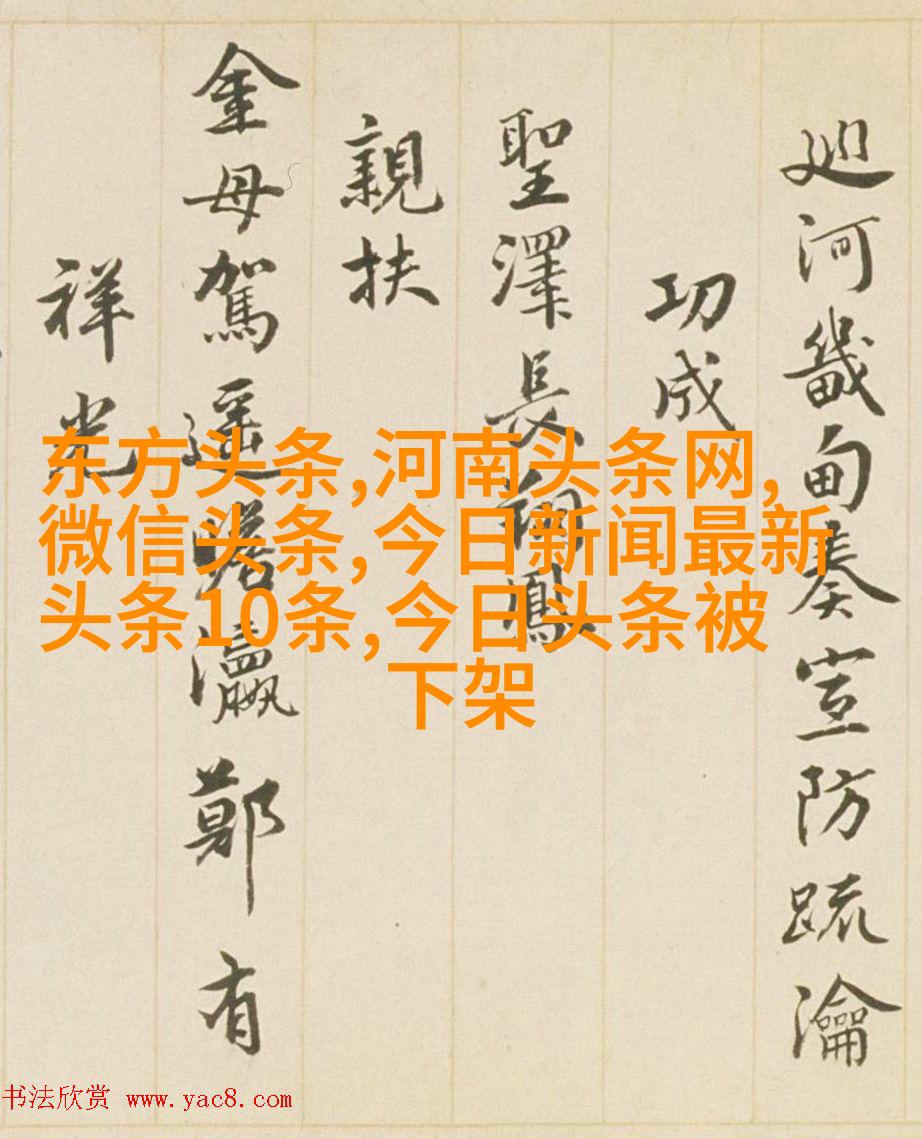 廵河畿甸奏宣防疏瀹
功成
聖澤長翔鳳
親扶
金母駕遥瞻瀛鄭有
祥光
东方头条,河南头条网,
微信头条,今日新闻最新
头条10条,今日头条被
下架
书法欣赏 www.yac8.com